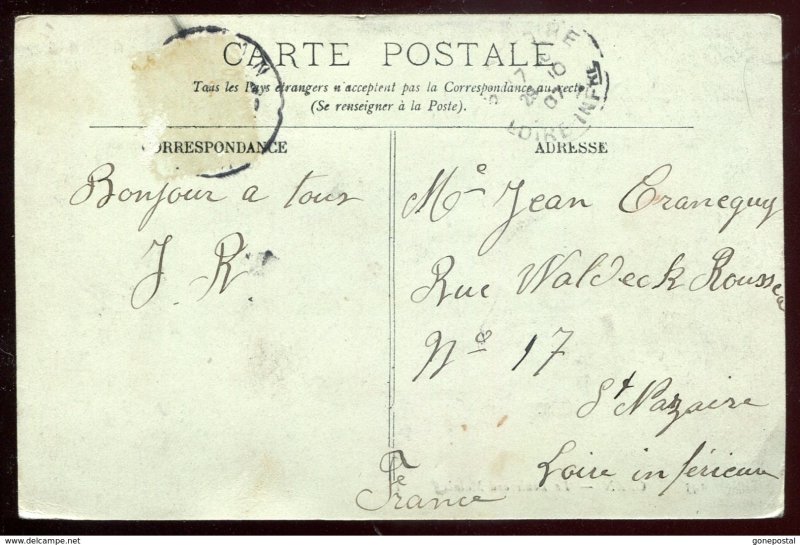 CARTE POSTALE
Tous les Pays étrangers n'acceptent pas la Correspondance au recto
(Se renseigner à la Poste).
CORRESPONDANCE
Bonjour a tous
J. R
ADRESSE
Me Jean Cranequy
Rue Waldeck Rousse
No 17
St Nazaire
Loire inférieure
France
7 
29 10
07
LOIRE-INFRE
hipstamp.com
gonepostal